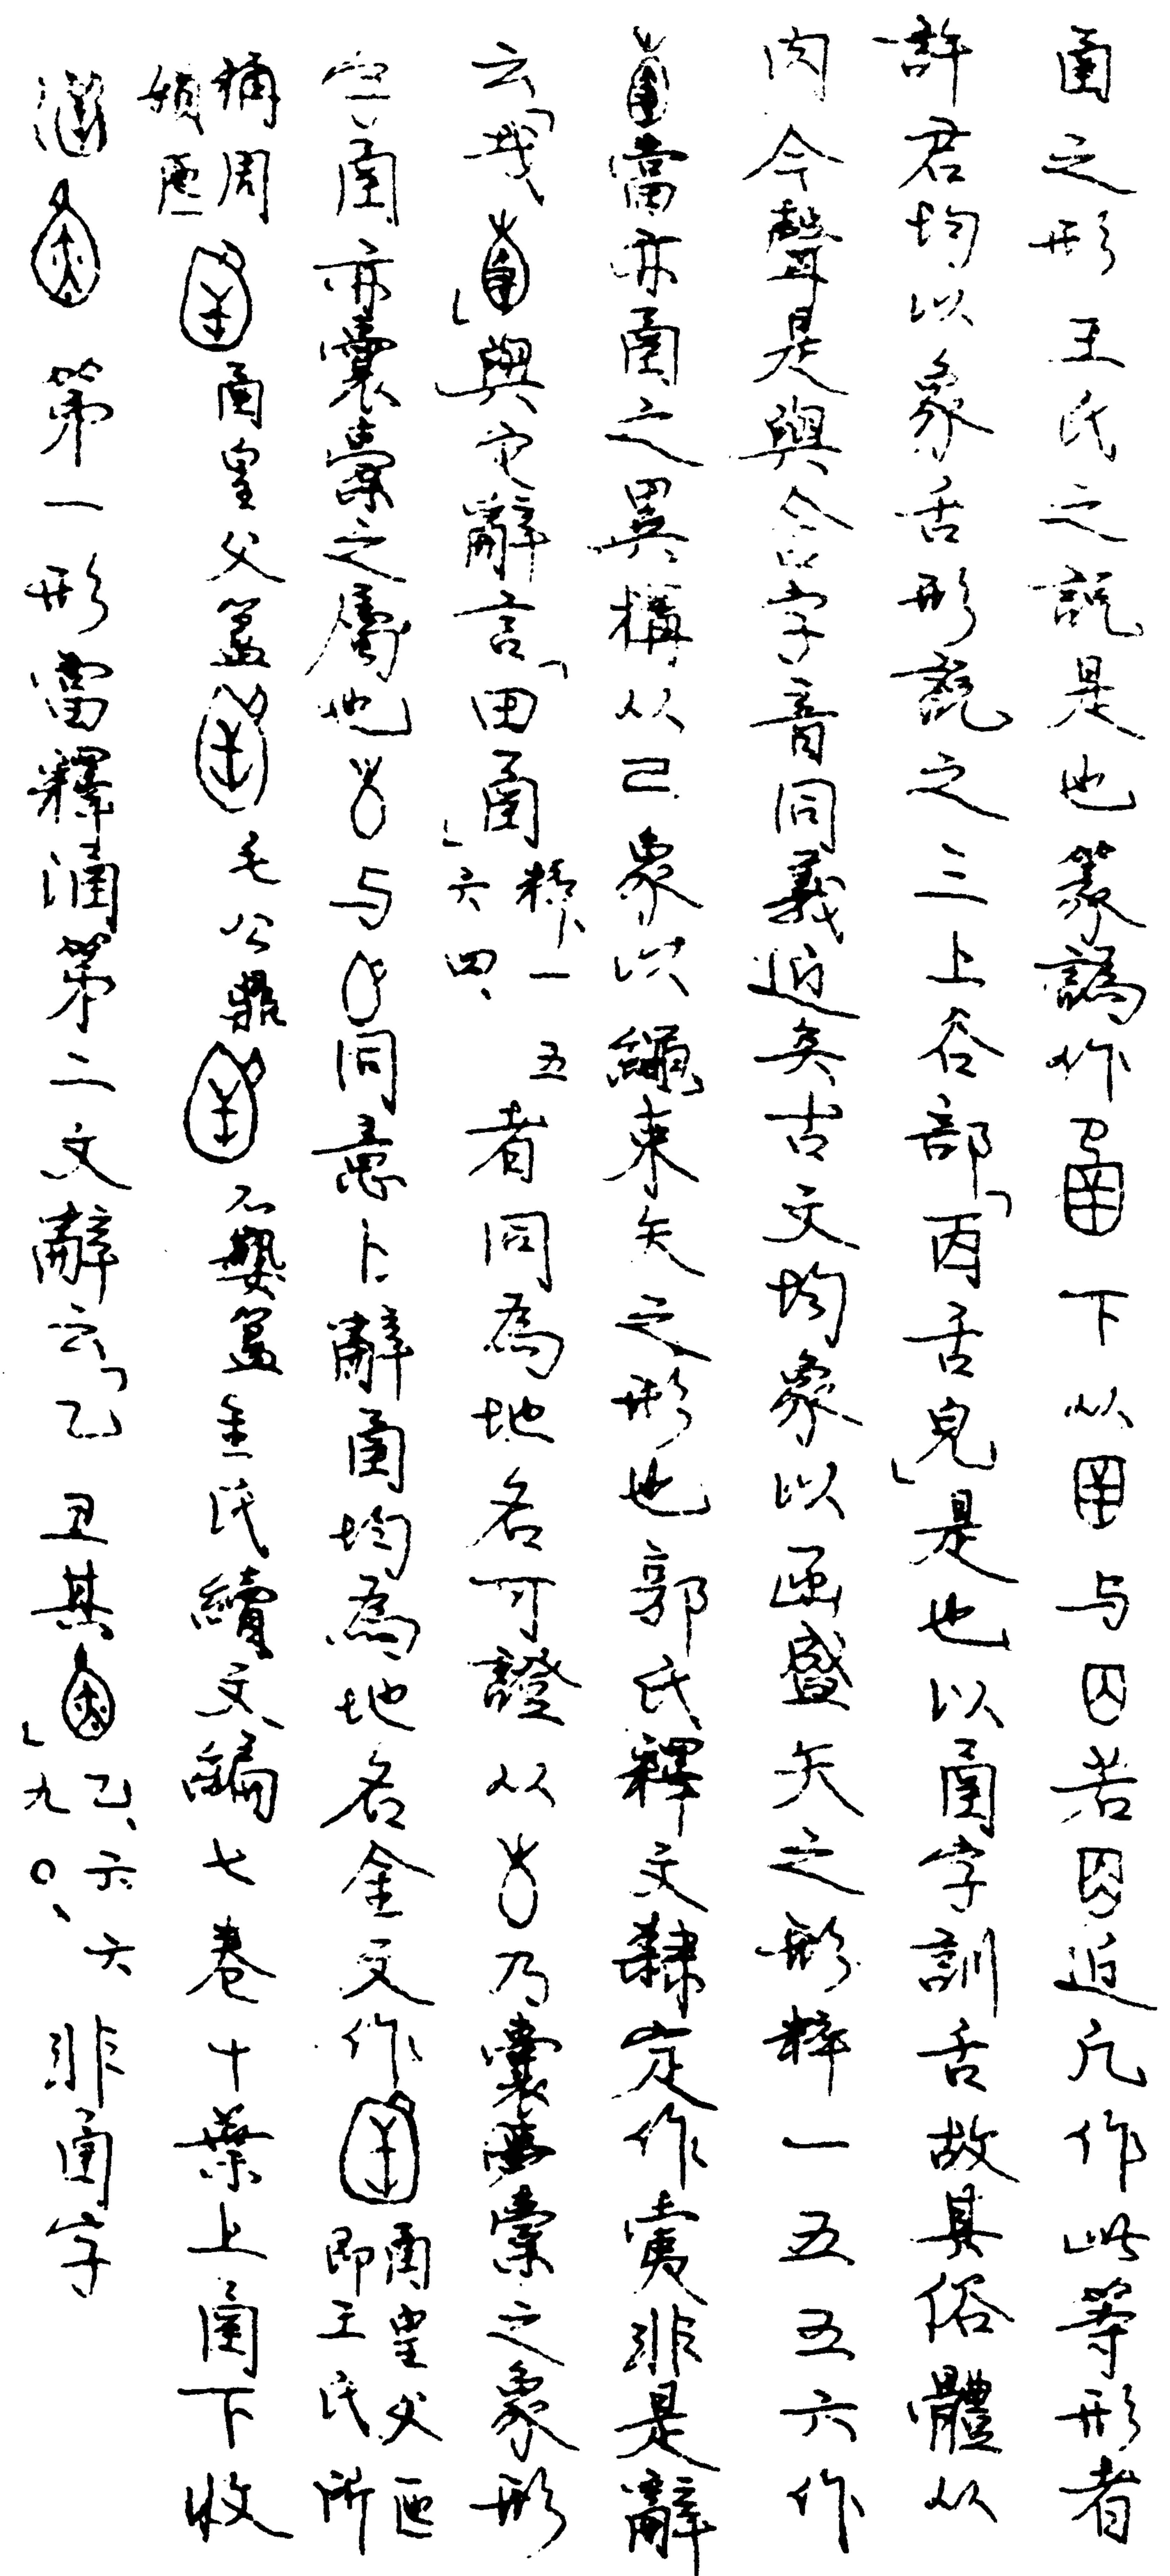 圅之形王氏之說是也篆譌作下从与囚若囟近凡作此等形者
許君均以象舌形說之三上谷部「㐁舌皃」是也以圅字訓舌故其俗體从
肉今聲是與含字音同義近矣古文均象以函盛矢之形粹一五五六作
當亦圅之異構从己象以繩束矢之形也郭氏釋文隸定作夤非是辭
云「哉」與它辭言「田圅」粹下一五六四、者同為地名可證从乃囊橐之象形
圅亦囊橐之屬也与同意卜辭圅均為地名金文作圅皇父匜即王氏所
稱周娟匜圅皇父簋毛公鼎不𡢁簋金氏續文編七卷十葉上圅下收
第一形當釋涵第二文辭云「乙丑其」乙、六六九〇、非圅字